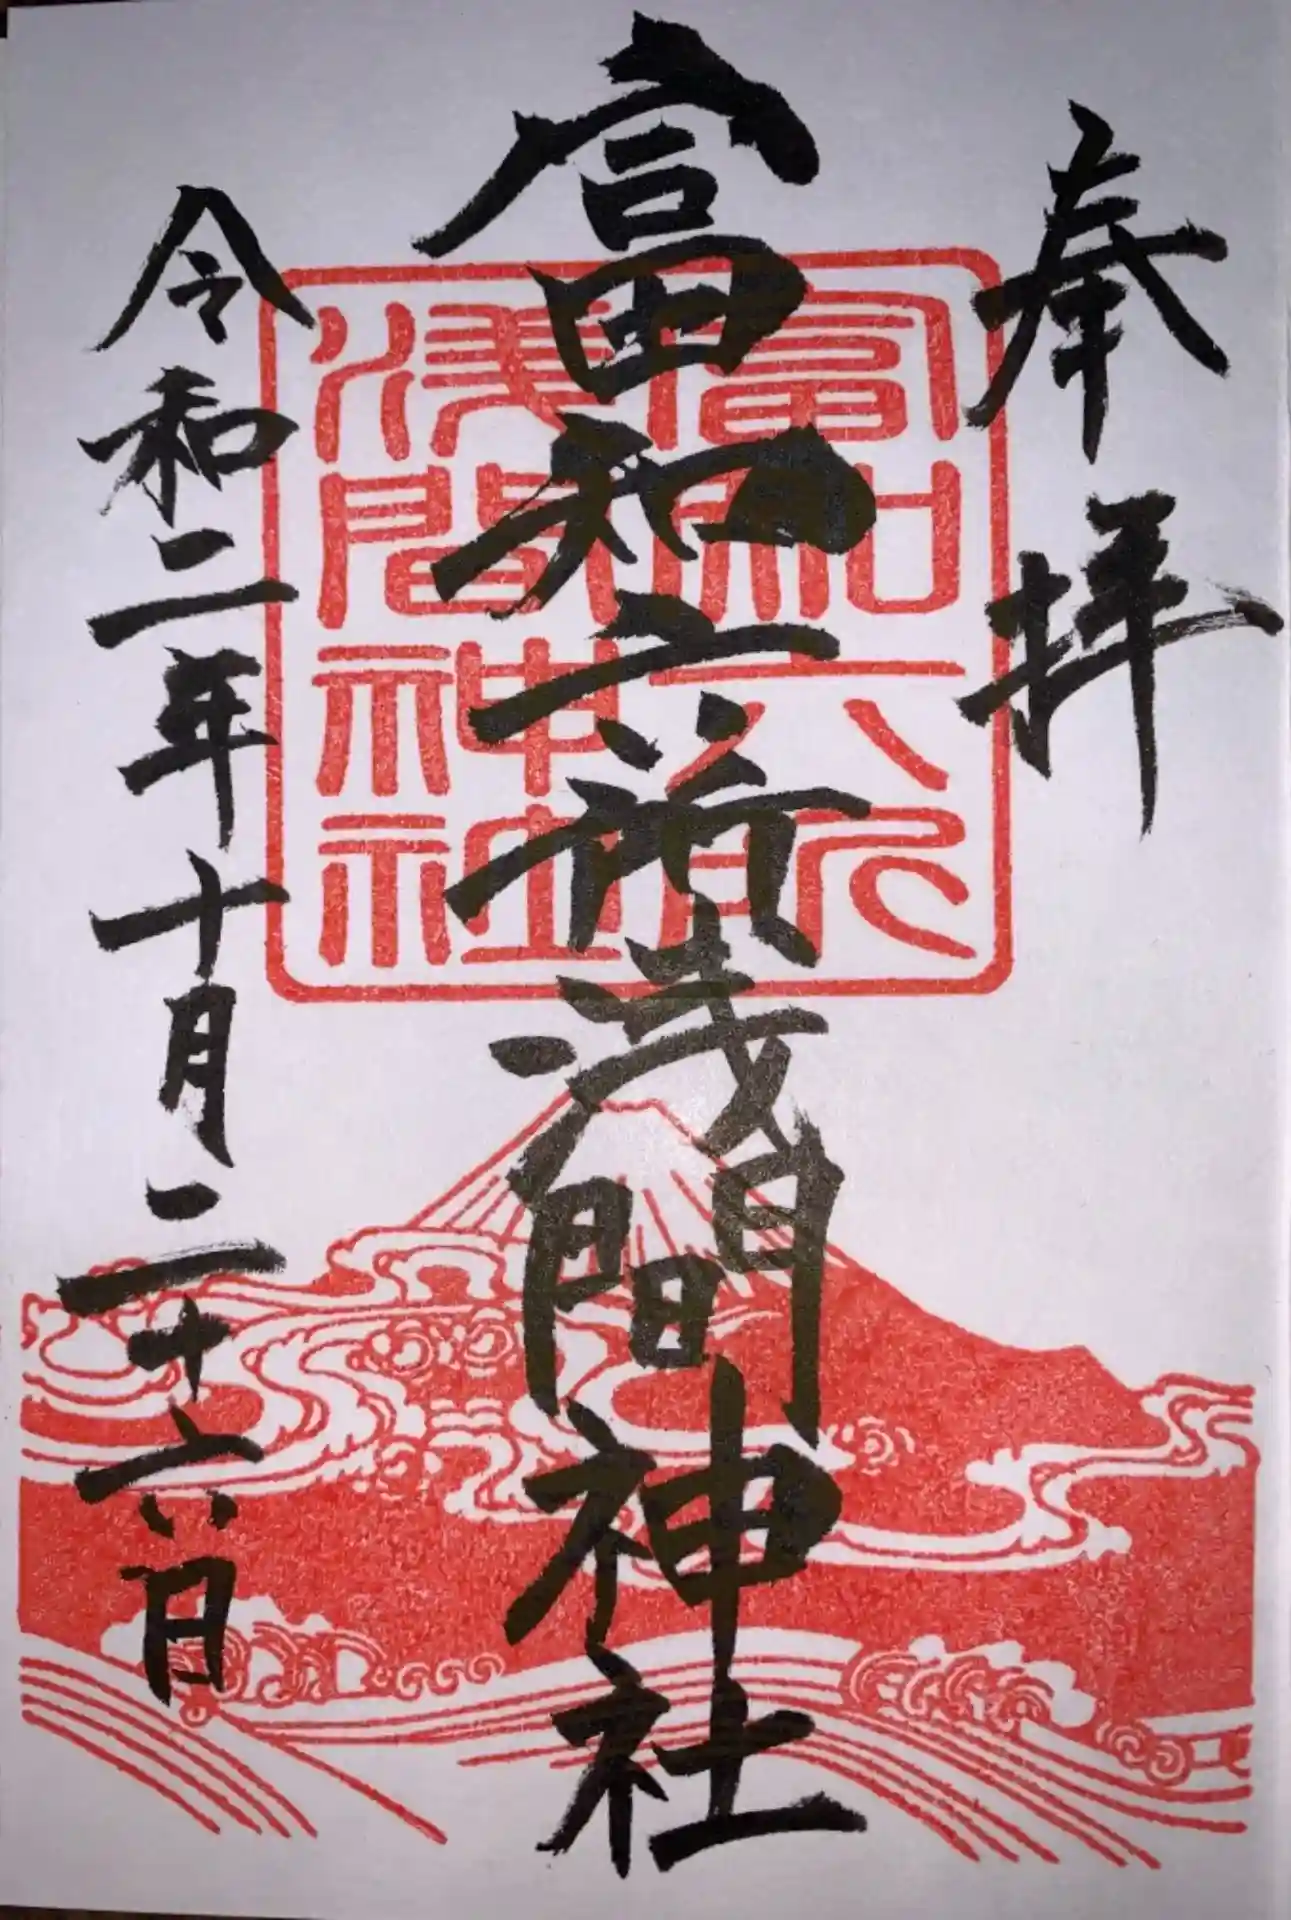 奉拝
富知六所浅間神社
令和二年十月二十六日
富知六所
浅間神社